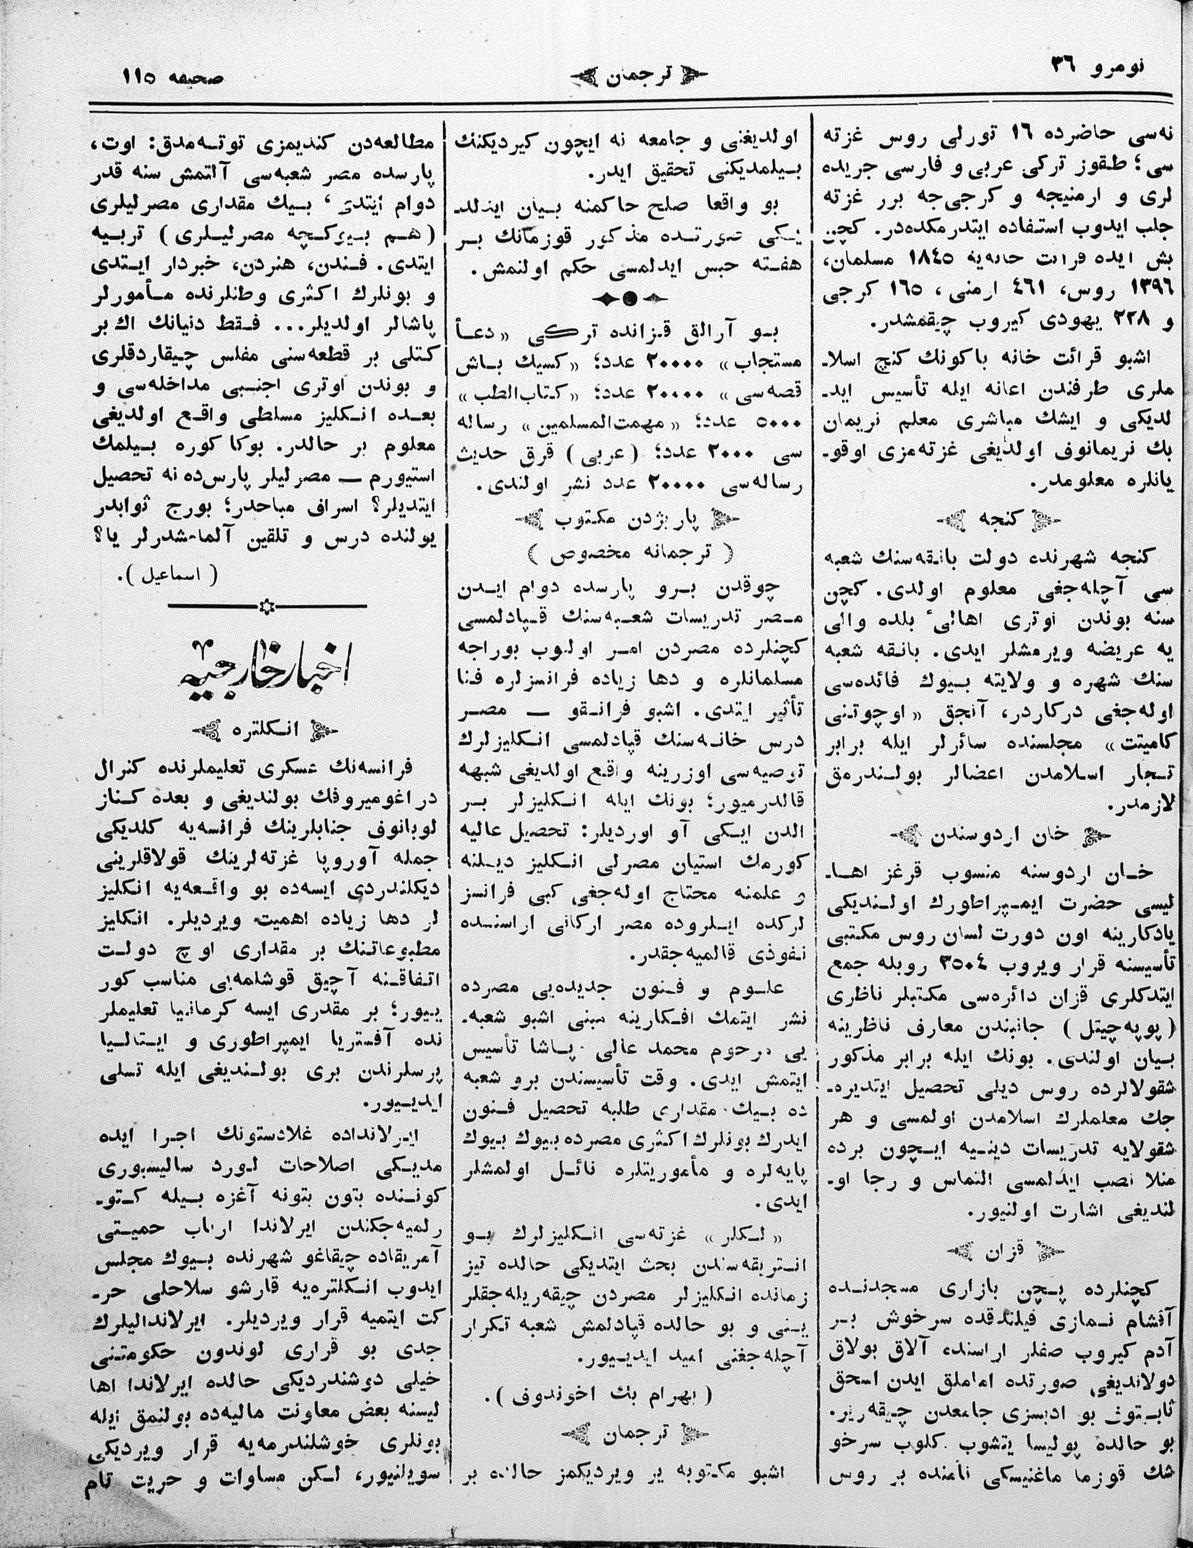 نومرو ٣٦
ترجمان
صحيفه ١١٥
نه‌سى حاضرده ١٦ تورلى روس غزته
سى؛ طقوز تركى عربى و فارسى جريده
لرى و ارمنيجه و كرجى‌جه برر غزته
جلب ايدوب استفاده ايتدرمكده‌در. كچن
بش ايده قرائت خانه‌يه ١٨٤٥ مسلمان،
١٣٩٦ روس، ٤٦١ ارمنى، ١٦٥ كرجى
و ٢٢٨ يهودى كيروب چيقمشدر.
اشبو قرائت خانه باكونك كنج اسلا-
ملرى طرفندن اعانه ايله تأسيس ايد-
لديكى و ايشك مباشرى معلم نريمان
بك نريمانوف اولديغى غزته‌مزى اوقو-
يانلره معلومدر.
كنجه
كنجه شهرنده دولت بانقه‌سنك شعبه
سى آچله‌جغى معلوم اولدى. كچن
سنه بوندن اوترى اهالئ بلده والى
يه عريضه ويرمشلر ايدى. بانقه شعبه
سنك شهره و ولايته بيوك فائده‌سى
اوله‌جغى دركاردر، آنجق «اوچوتنى
كاميتت» مجلسنده سائرلر ايله برابر
تجار اسلامدن اعضالر بولندرمق
لازمدر.
خان اردوسندن
خان اردوسنه منسوب قرغز اها-
ليسى حضرت ايمپراطورك اولنديكى
يادكارينه اون دورت لسان روس مكتبى
تأسيسنه قرار ويروب ٣٥٠٤ روبله جمع
ايتدكلرى قزان دائره‌سى مكتبلر ناظرى
(پوپه‌چيتل) جانبندن معارف ناظرينه
بيان اولندى. بونك ايله برابر مذكور
شقولالرده روس ديلى تحصيل ايتديره-
جك معلملرك اسلامدن اولمسى و هر
شقولايه تدريسات دينيه ايچون برده
منلا نصب ايدلمسى التماس و رجا او-
لنديغى اشارت اولنيور.
قزان
كچنلرده پچن بازارى مسجدنده
آقشام نمازى قيلندقده سرخوش بر
آدم كيروب صفلر اراسنده آلاق بولاق
دولانديغى صورتده اماملق ايدن اسحق
ثابتوف بو ادبسزى جامعدن چيقه‌رير.
بو حالده پوليسا يتشوب كلوب سرخو
شك قوزما ماغنيسكى نامنده بر روس
اولديغنى و جامعه نه ايچون كيرديكنك
بيلمديكنى تحقيق ايدر.
بو واقعا صلح حاكمنه بيان ايدلد-
يكى صورتده مذكور قوزمانك بر
هفته حبس ايدلمسى حكم اولنمش.
بو آرالق قزانده تركى «دعأ
مستجاب» ٢٠٠٠٠ عدد؛ «كسيك باش
قصه‌سى» ٢٠٠٠٠ عدد؛ «كتاب‌الطب»
٥٠٠٠ عدد؛ «مهمت‌المسلمين» رساله
سى ٢٠٠٠ عدد؛ (عربى) قرق حديث
رساله‌سى ٢٠٠٠٠ عدد نشر اولندى.
پاريژدن مكتوب
(ترجمانه مخصوص)
چوقدن برو پارسده دوام ايدن
مصر تدريسات شعبه‌سنك قپادلمسى
كچنلرده مصردن امر اولنوب بوراجه
مسلمانلره و دها زياده فرانسزلره فنا
تأثير ايتدى. اشبو فرانقو — مصر
درس خانه‌سنك قپادلمسى انكليزلرك
توصيه‌سى اوزرينه واقع اولديغى شبهه
قالدرميور؛ بونك ايله انكليزلر بر
الدن ايكى آو اورديلر: تحصيل عاليه
كورمك استيان مصرلى انكليز ديلنه
و علمنه محتاج اوله‌جغى كبى فرانسز
لركده ايلروده مصر اركانى اراسنده
نفوذى قالميه‌جقدر.
علوم و فنون جديده‌يى مصرده
نشر ايتمك افكارينه مبنى اشبو شعبه-
يى مرحوم محمد عالى پاشا تأسيس
ايتمش ايدى. وقت تأسيسندن برو شعبه
ده بيك مقدارى طلبه تحصيل فنون
ايدرك بونلرك اكثرى مصرده بيوك بيوك
پايه‌لره و مأموريتلره نائل اولمشلر
ايدى.
«لكلر» غزته‌سى انكليزلرك بو
انتريقه‌سندن بحث ايتديكى حالده تيز
زمانده انكليزلر مصردن چيقه‌ريله‌جقلر
ينى و بو حالده قپادلمش شعبه تكرار
آچله‌جغنى اميد ايدييور.
(بهرام بك اخوندوف).
ترجمان
اشبو مكتوبه ير ويرديكمز حالده بر
مطالعه‌دن كنديمزى توته‌مدق: اوت،
پارسده مصر شعبه‌سى آلتمش سنه قدر
دوام ايتدى، بيك مقدارى مصرليلرى
(هم بيوكچه مصرليلرى) تربيه
ايتدى. فندن، هنردن، خبردار ايتدى
و بونلرك اكثرى وطنلرنده مأمورلر
پاشالر اولديلر... فقط دنيانك اك بر
كتلى بر قطعه‌سنى مفلس چيقاردقلرى
و بوندن اوترى اجنبى مداخله‌سى و
بعده انكليز مسلطى واقع اولديغى
معلوم بر حالدر. بوكا كوره بيلمك
استيورم — مصرليلر پارس‌ده نه تحصيل
ايتديلر؟ اسراف مباحدر؛ بورج ثوابدر
يولنده درس و تلقين آلمامشدرلر يا؟
(اسماعيل).
اخبار خارجيه
انكلتره
فرانسه‌نك عسكرى تعليملرنده كنرال
دراغوميروفك بولنديغى و بعده كناز
لوبانوف جنابلرينك فرانسه‌يه كلديكى
جمله آوروپا غزته‌لرينك قولاقلرينى
ديكلندردى ايسه‌ده بو واقعه‌يه انكليز
لر دها زياده اهميت ويرديلر. انكليز
مطبوعاتنك بر مقدارى اوچ دولت
اتفاقنه آچيق قوشلمه‌يى مناسب كور
ييور؛ بر مقدرى ايسه كرمانيا تعليملر
نده آفستريا ايمپراطورى و ايتاليا
پرسلرندن برى بولنديغى ايله تسلى
ايدييور.
ايرلانداده غلادستونك اجرا ايده
مديكى اصلاحات لورد ساليسبورى
كوننده بتون بتونه آغزه بيله كتو-
رلميه‌جكندن ايرلاندا ارباب حميتى
آمريقاده چيقاغو شهرنده بيوك مجلس
ايدوب انكلتره‌يه قارشو سلاحلى حر-
كت ايتميه قرار ويرديلر. ايرلانداليلرك
جدى بو قرارى لوندون حكومتنى
خيلى دوشندرديكى حالده ايرلاندا اها
ليسنه بعض معاونت ماليه‌ده بولنمق ايله
بونلرى خوشلندرمه‌يه قرار ويرديكى
سويلنيور، لكن مساوات و حريت تام